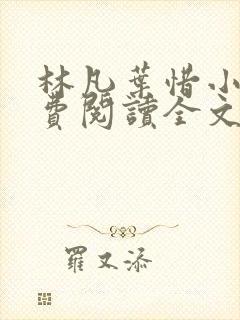 林凡葉惜小
費閱讀全文
羅又添